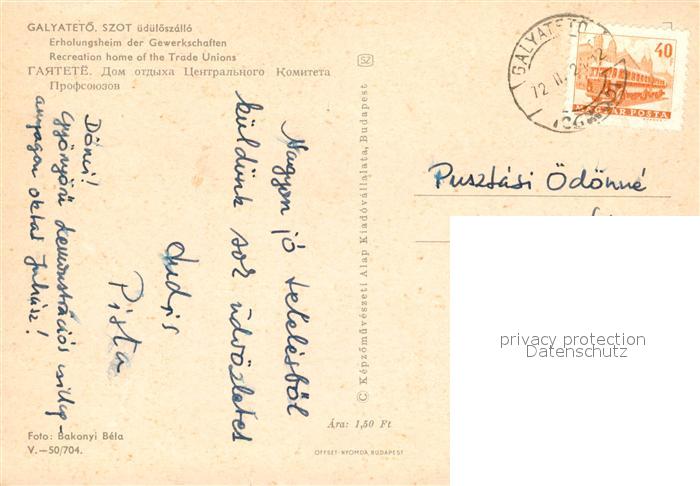 GALYATETŐ. SZOT üdülőszálló
Erholungsheim der Gewerkschaften
Recreation home of the Trade Unions
ГАЯТЕТЁ. Дом отдыха Центрального Комитета
Профсоюзов
SZ
GALYATETŐ
72 II. 2
40 f
MAGYAR POSTA
Nagyon jó telelésből
küldünk sok üdvözletet
Pista
Dönci!
Gyönyörű demonstrációs csillag-
anyagon oktat Juhász!
Pusztási Ödönné
© Képzőművészeti Alap Kiadóvállalata, Budapest
privacy protection
Datenschutz
Foto: Bakonyi Béla
V.—50/704.
Ára: 1,50 Ft
OFFSET-NYOMDA, BUDAPEST